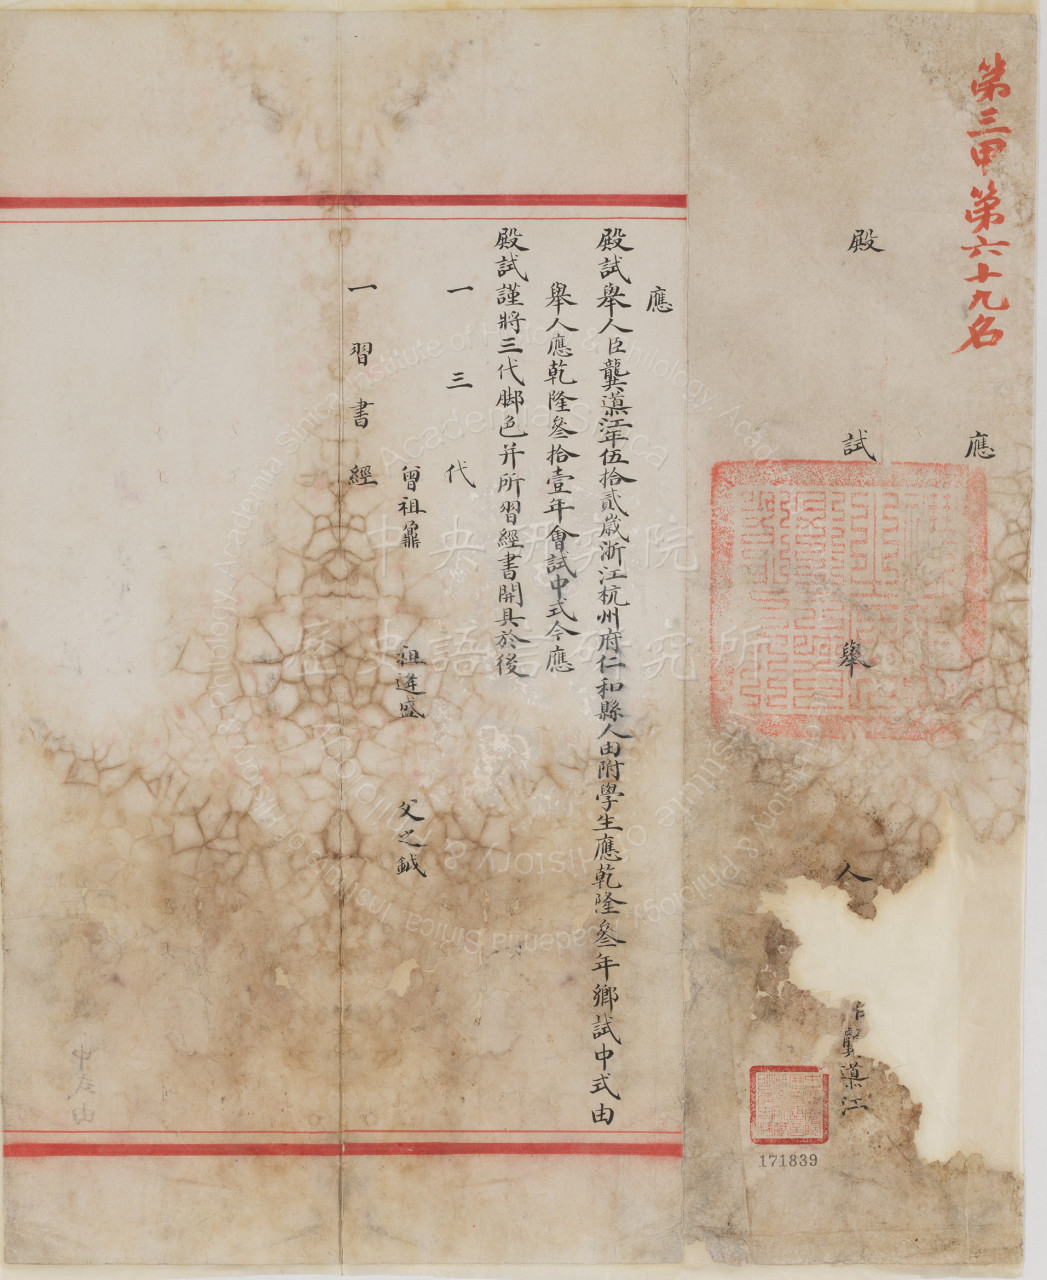 第三甲第六十九名
應
殿試舉人
龔導江
171839
應
殿試舉人臣龔導江年伍拾貳歲浙江杭州府仁和縣人由附學生應乾隆叁年鄉試中式由
舉人應乾隆叁拾壹年會試中式今應
殿試謹將三代脚色并所習經書開具於後
一三代
曾祖鼐 祖進盛 父之鉞
一習書經
中央研究院
歷史語言研究所
Institute of History & Philology Academia Sinica